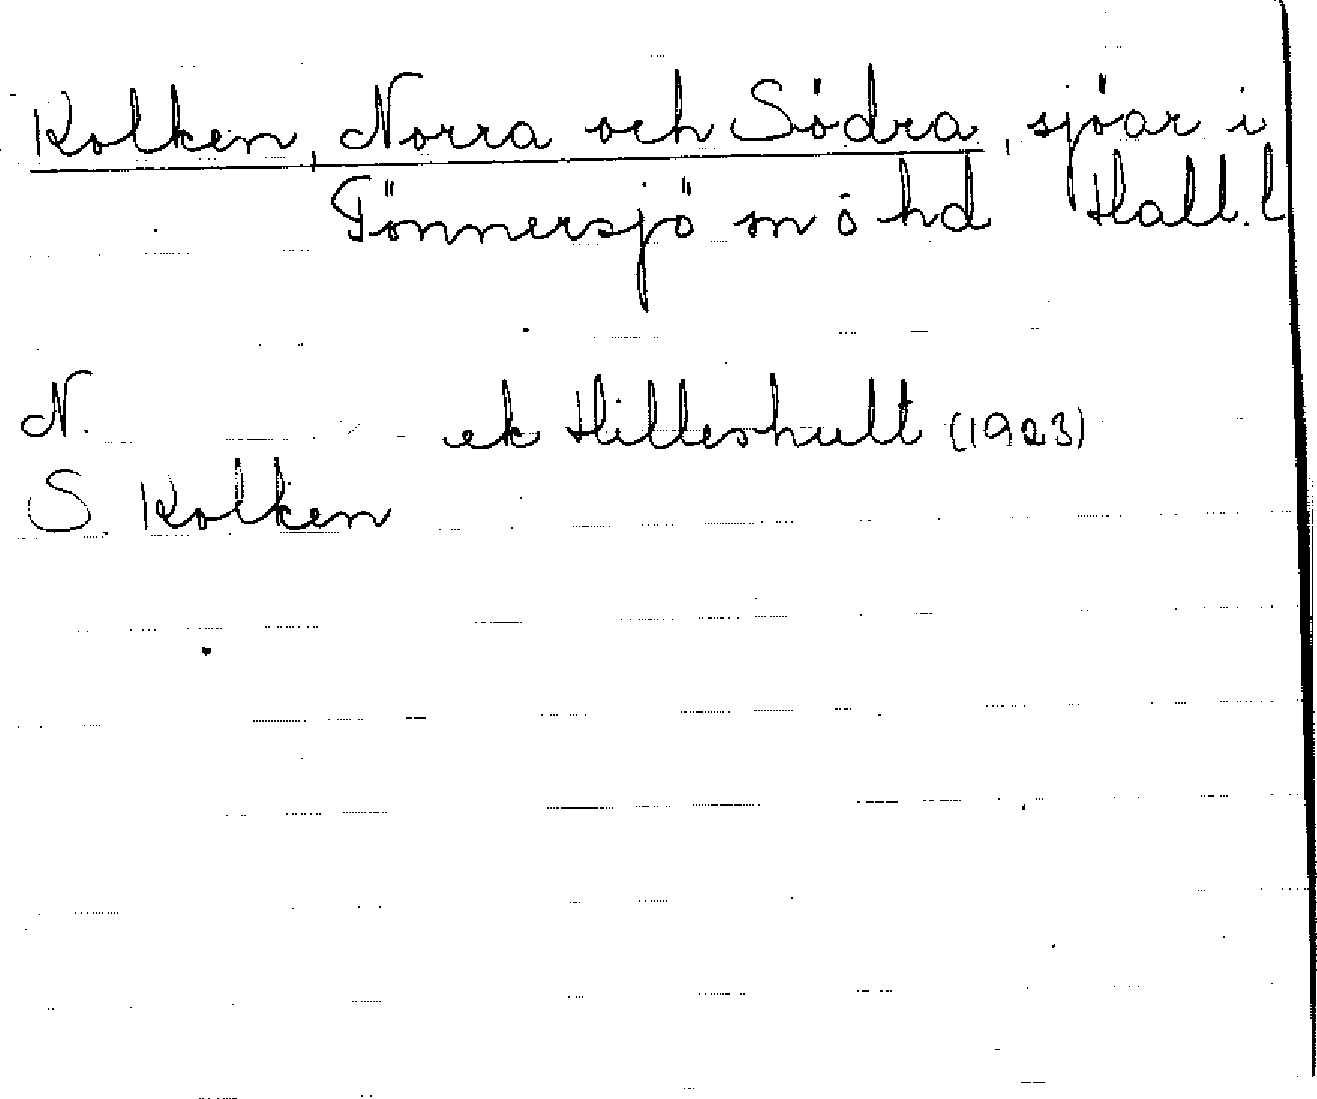 Kolken, Norra och Södra, sjöar i
Tönnersjö sn o hd Hall. l
N. ek Hilleshult (1923)
S. Kolken